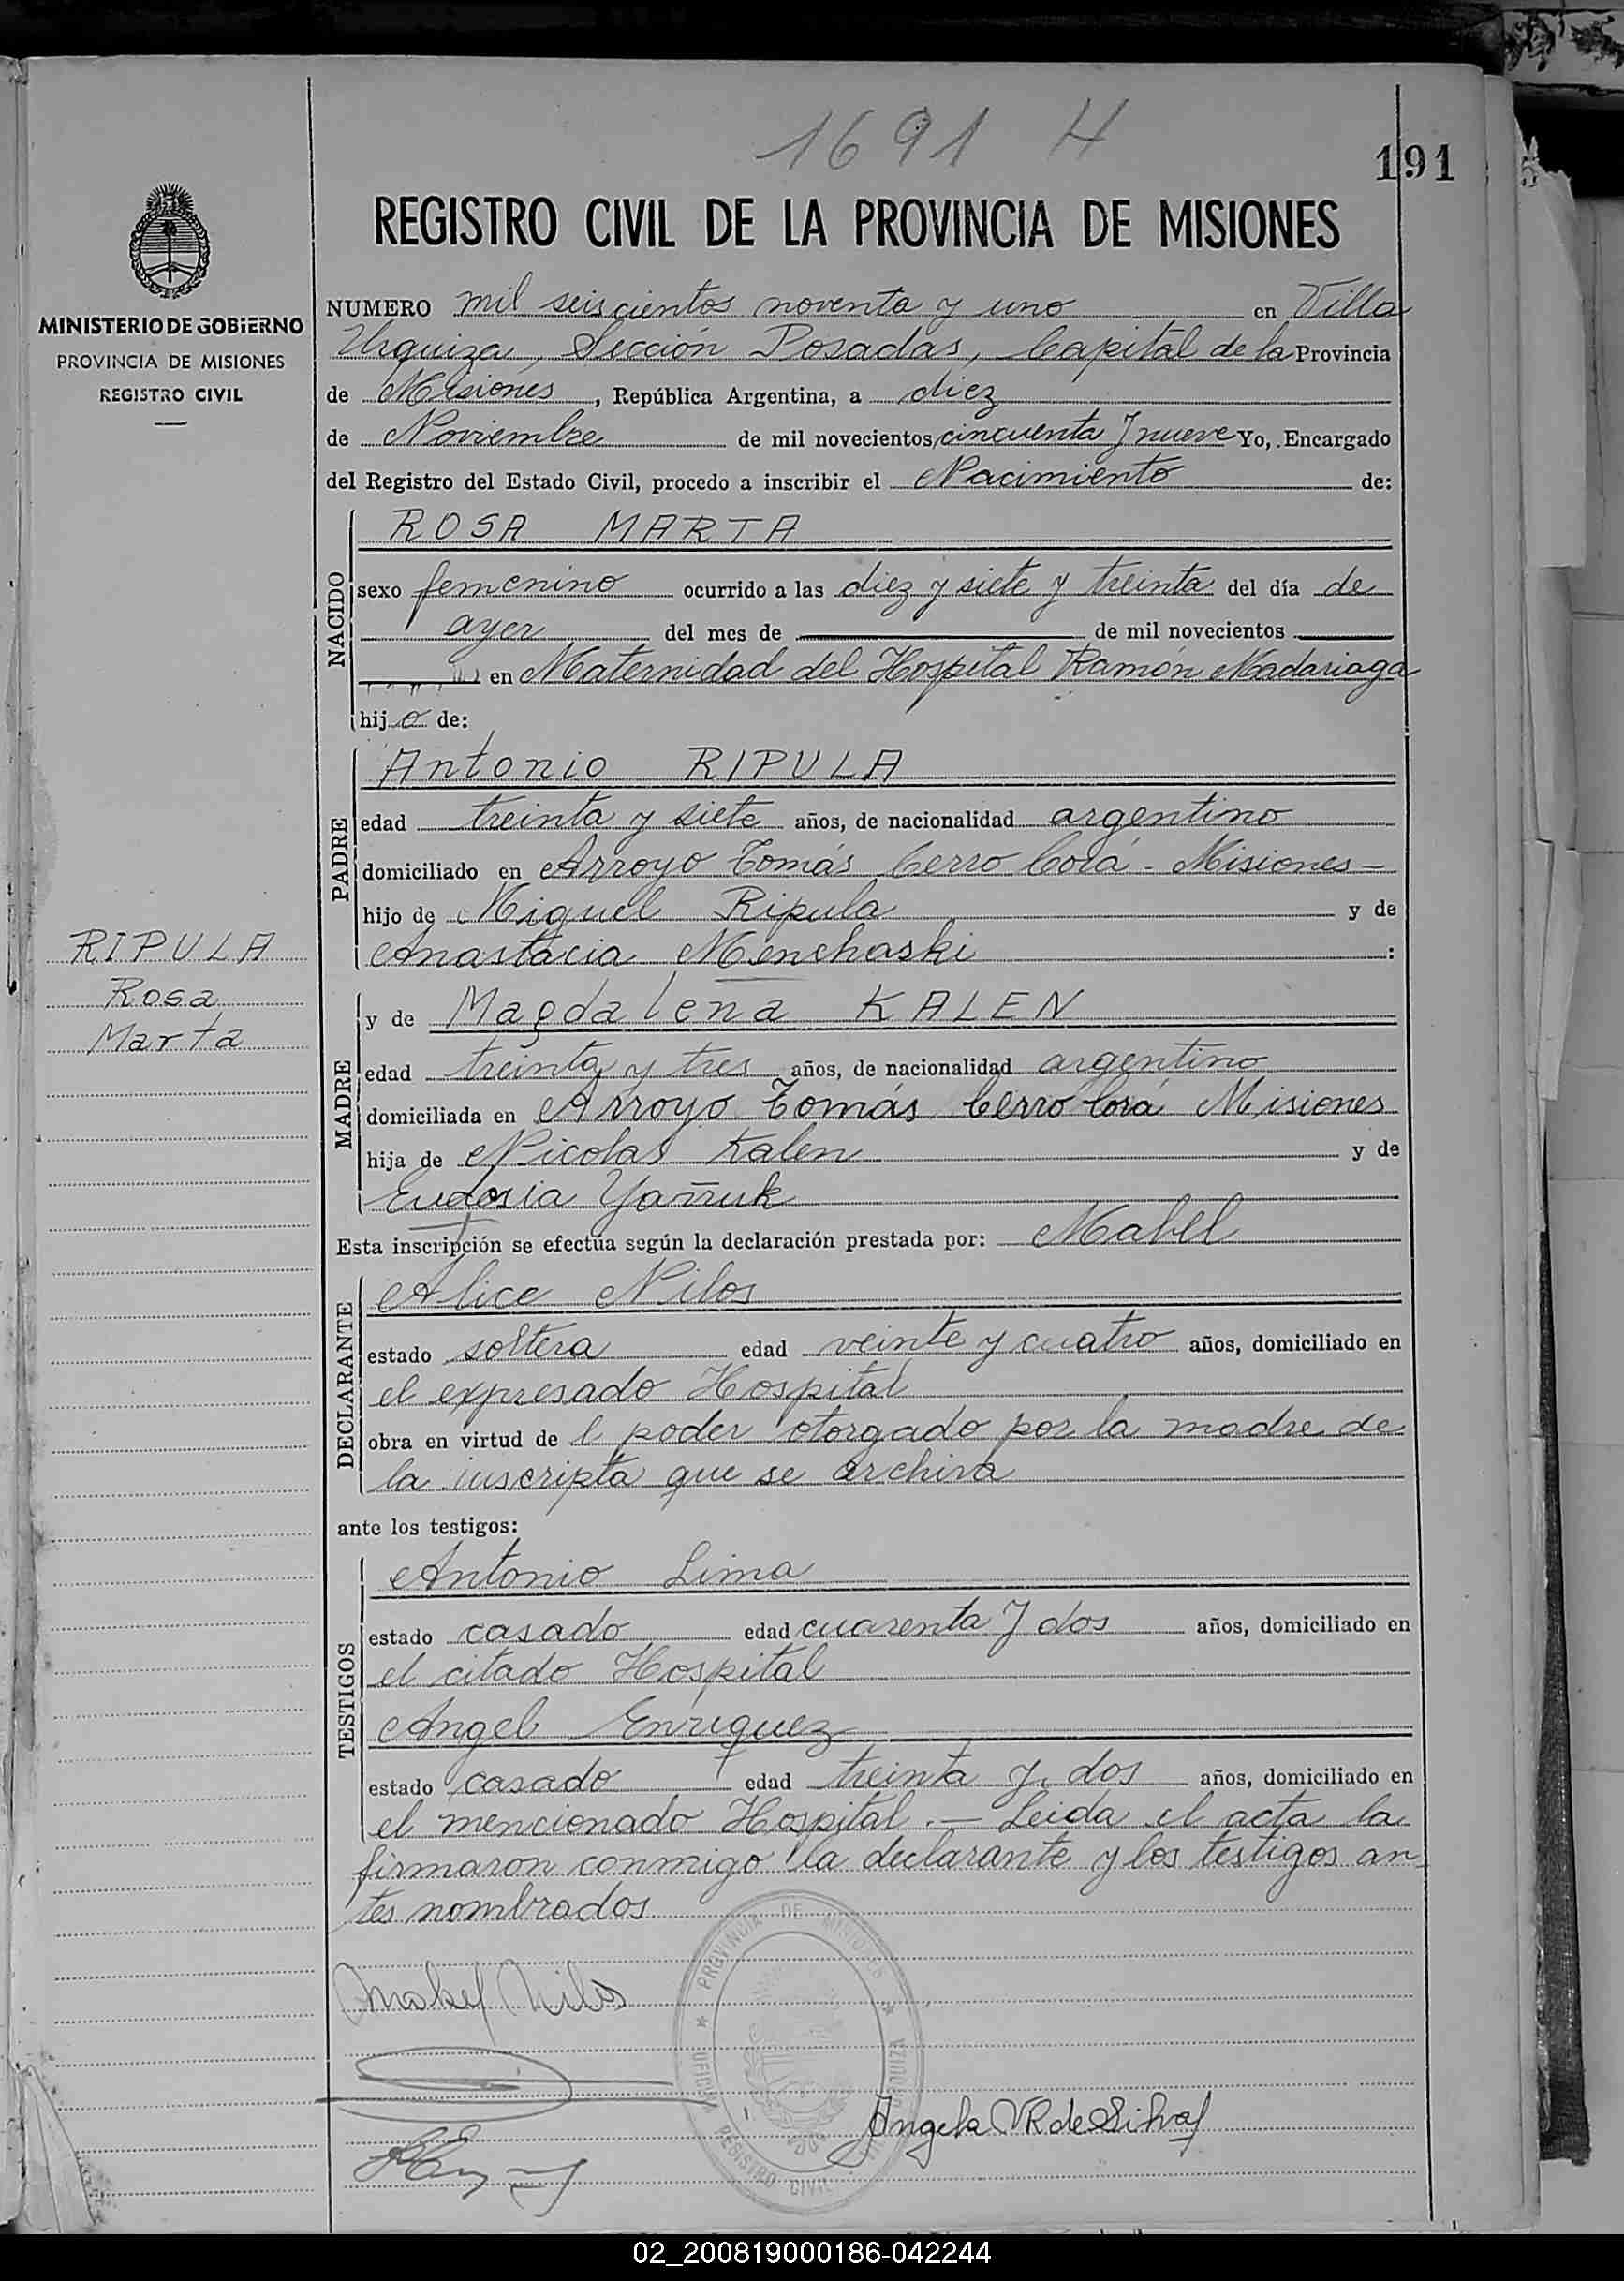 1691 H
191
REGISTRO CIVIL DE LA PROVINCIA DE MISIONES
MINISTERIO DE GOBIERNO
PROVINCIA DE MISIONES
REGISTRO CIVIL
NUMERO mil seiscientos noventa y uno en Villa
Urquiza, Sección Posadas, Capital de la Provincia
de Misiones, República Argentina, a diez
de Noviembre de mil novecientos cincuenta y nueve Yo, Encargado
del Registro del Estado Civil, procedo a inscribir el Nacimiento de:
NACIDO
ROSA MARTA
sexo femenino ocurrido a las diez y siete y treinta del día de
ayer del mes de de mil novecientos
en Maternidad del Hospital Ramón Madariaga
hijo de:
PADRE
Antonio RIPULA
edad treinta y siete años, de nacionalidad argentino
domiciliado en Arroyo Tomás Cerro Corá - Misiones -
hijo de Miguel Ripula y de
Anastacia Menchaski :
RIPULA
Rosa
Marta
MADRE
y de Magdalena KALEN
edad treinta y tres años, de nacionalidad argentino
domiciliada en Arroyo Tomás Cerro Corá Misiones
hija de Nicolas Kalen y de
Eudosia Yañuk
Esta inscripción se efectúa según la declaración prestada por: Mabel
DECLARANTE
Alice Nilos
estado soltera edad veinte y cuatro años, domiciliado en
el expresado Hospital
obra en virtud de l poder otorgado por la madre de
la inscripta que se archiva
ante los testigos:
TESTIGOS
Antonio Lima
estado casado edad cuarenta y dos años, domiciliado en
el citado Hospital
Angel Enriquez
estado casado edad treinta y dos años, domiciliado en
el mencionado Hospital. - Leida el acta la
firmaron conmigo la declarante y los testigos an-
tes nombrados
Mabel Nilos
PROVINCIA DE MISIONES
REGISTRO CIVIL
Angela VR de Silva
02_200819000186-042244